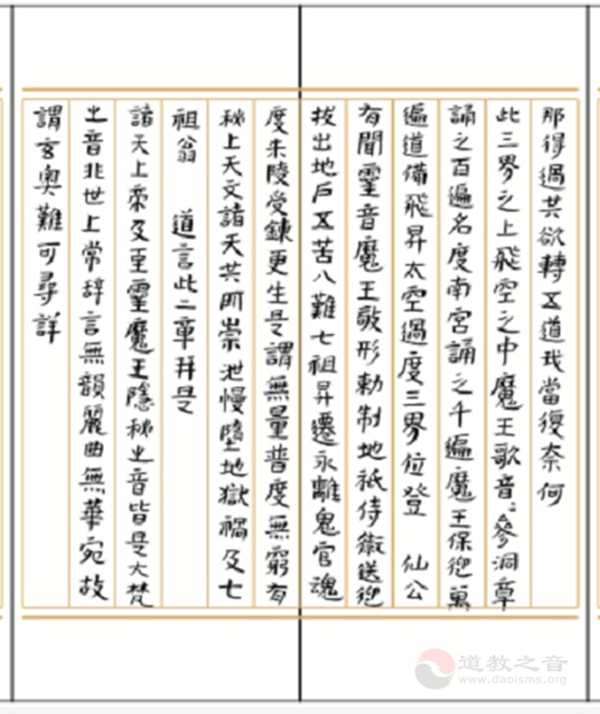 那得過其欲轉五道我當復奈何
此三界之上飛空之中魔王歌音音參洞章
誦之百遍名度南宮誦之千遍魔王保迎萬
遍道備飛昇太空過度三界位登 仙公
有聞靈音魔王敬形勅制地祇侍衛送迎
拔出地戶五苦八難七祖昇遷永離鬼官魂
度朱陵受鍊更生是謂無量普度無窮有
秘上天文諸天共所崇泄慢墮地獄禍及七
祖翁 道言此二章并是
諸天上帝及至靈魔王隱秘之音皆是大梵
之言非世上常辞言無韻麗曲無華宛故
謂玄奧難可尋詳
道教之音
www.daoisms.org